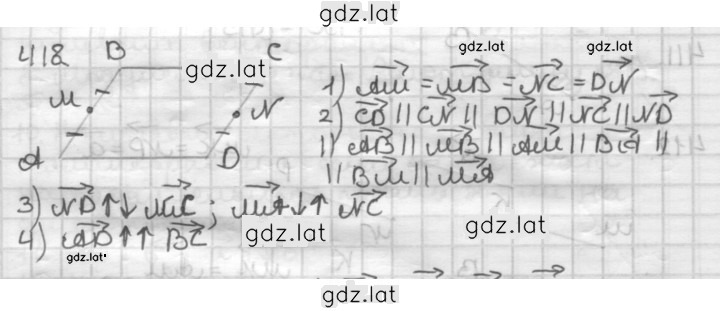 gdz.lat
418 B C
gdz.lat gdz.lat gdz.lat
M N
A D
1) AM = MB = NC = DN
2) CD || CN || DN || NC || ND
|| AB || MB || AM || BA ||
|| BM || MA
3) ND ↑↓ NC ; MA ↓↑ NC
4) AD ↑↑ BC
gdz.lat gdz.lat gdz.lat
gdz.lat